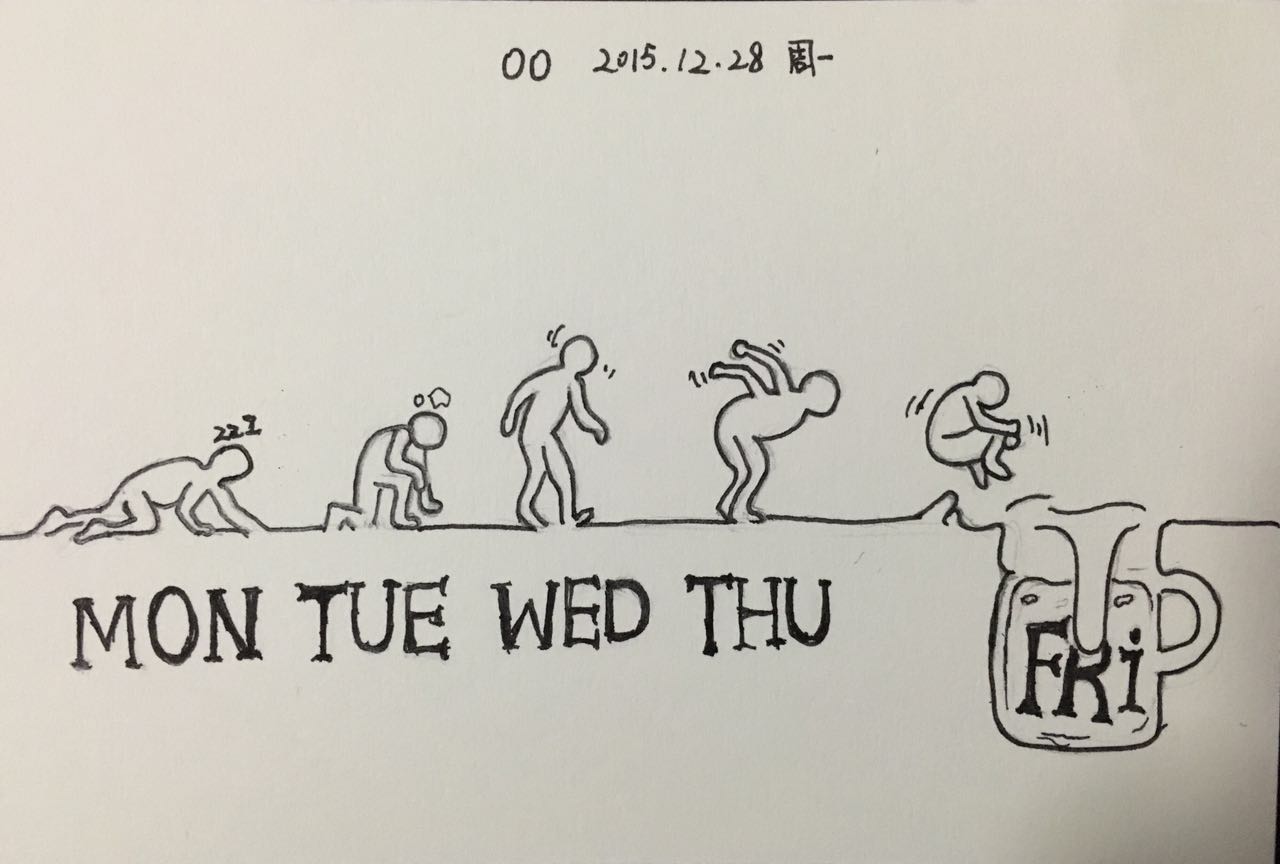 OO 2015.12.28 周一
zzz
MON TUE WED THU
FRi